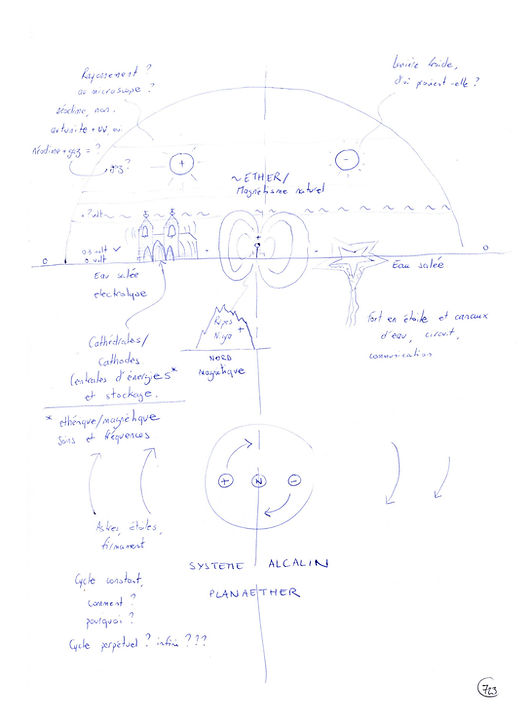 Rayonnement ?
au microscope ?
néodime, non.
autunite + UV, oui
Néodime + gaz = ?
gaz ?
Lumière froide,
d'où provient-elle ?
+
-
~ ETHER /
Magnétisme naturel
+ ? volt
0.5 volt ✓
0 volt
0
0
+
-
-
Eau salée
électrolyse
Eau salée
Fort en étoile et canaux
d'eau, circuit,
communication
Cathédrales /
Cathodes
Centrales d'énergies*
et stockage.
* ethérique/magnétique
Sons et fréquences
Rūpes
Nigra
+
NORD
Magnétique
+
N
-
Astres, étoiles,
firmament
SYSTEME ALCALIN
PLANAETHER
Cycle constant,
comment ?
pourquoi ?
Cycle perpétuel ? infini ???
723